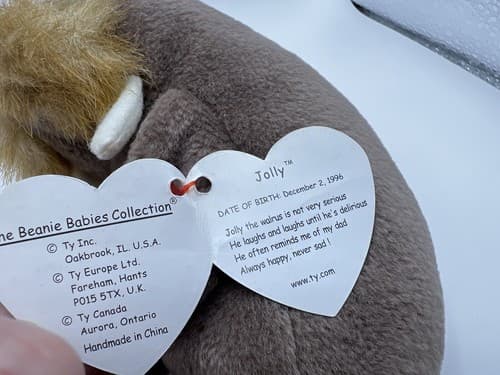 he Beanie Babies Collection®
© Ty Inc.
Oakbrook, IL. U.S.A.
© Ty Europe Ltd.
Fareham, Hants
PO15 5TX, U.K.
© Ty Canada
Aurora, Ontario
Handmade in China
Jolly™
DATE OF BIRTH: December 2, 1996
Jolly the walrus is not very serious
He laughs and laughs until he's delirious
He often reminds me of my dad
Always happy, never sad !
www.ty.com